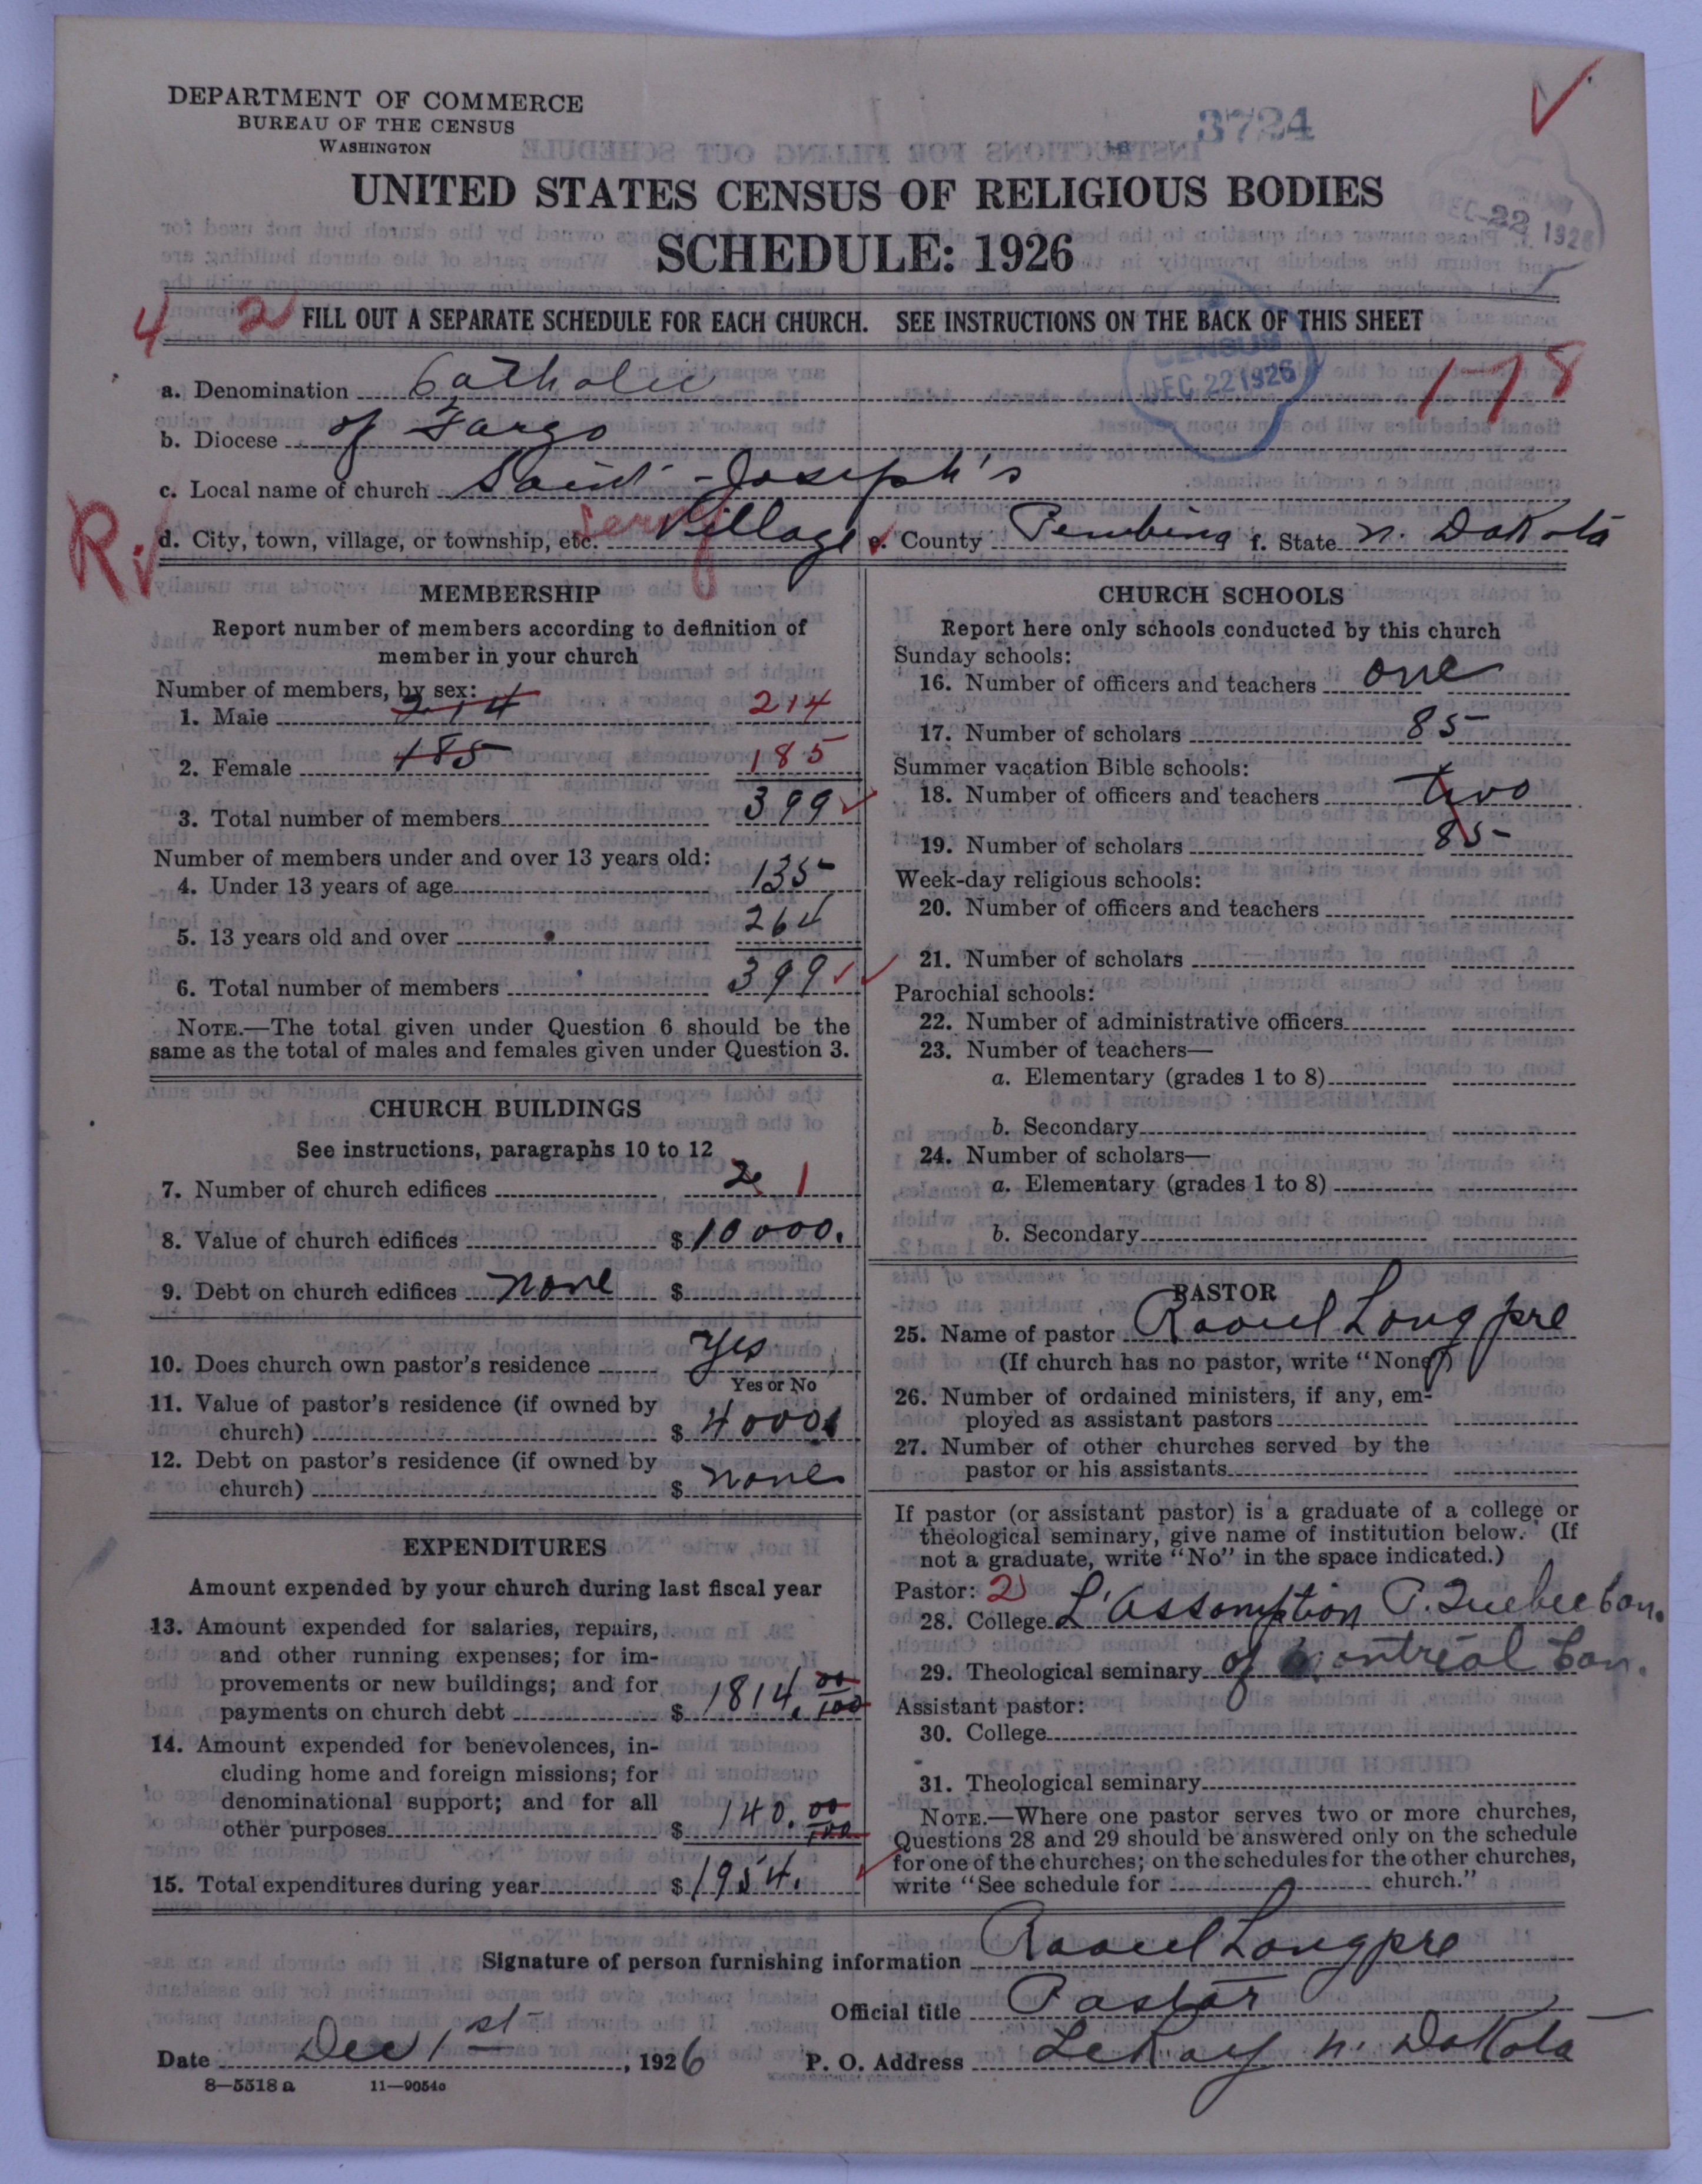 DEPARTMENT OF COMMERCE
BUREAU OF THE CENSUS
WASHINGTON
3724
UNITED STATES CENSUS OF RELIGIOUS BODIES
SCHEDULE: 1926
DEC 22 1926
4 2 FILL OUT A SEPARATE SCHEDULE FOR EACH CHURCH. SEE INSTRUCTIONS ON THE BACK OF THIS SHEET
CENSUS
DEC 22 1926
178
a. Denomination Catholic
b. Diocese of Fargo
c. Local name of church Saint-Joseph's
R
d. City, town, village, or township, etc. Leroy Village e. County Pembina f. State N. Dakota
MEMBERSHIP
Report number of members according to definition of
member in your church
Number of members, by sex:
1. Male 214 214
2. Female 185 185
3. Total number of members 399
Number of members under and over 13 years old:
4. Under 13 years of age 135
5. 13 years old and over 264
6. Total number of members 399
NOTE.—The total given under Question 6 should be the
same as the total of males and females given under Question 3.
CHURCH BUILDINGS
See instructions, paragraphs 10 to 12
7. Number of church edifices 2 1
8. Value of church edifices $ 10000.
9. Debt on church edifices none $
10. Does church own pastor's residence Yes
Yes or No
11. Value of pastor's residence (if owned by
church) $ 4000
12. Debt on pastor's residence (if owned by
church) $ none
EXPENDITURES
Amount expended by your church during last fiscal year
13. Amount expended for salaries, repairs,
and other running expenses; for im-
provements or new buildings; and for
payments on church debt $ 1814. 00/100
14. Amount expended for benevolences, in-
cluding home and foreign missions; for
denominational support; and for all
other purposes $ 140. 00/100
15. Total expenditures during year $ 1954.
CHURCH SCHOOLS
Report here only schools conducted by this church
Sunday schools:
16. Number of officers and teachers one
17. Number of scholars 85
Summer vacation Bible schools:
18. Number of officers and teachers two
19. Number of scholars 85
Week-day religious schools:
20. Number of officers and teachers
21. Number of scholars
Parochial schools:
22. Number of administrative officers
23. Number of teachers—
a. Elementary (grades 1 to 8)
b. Secondary
24. Number of scholars—
a. Elementary (grades 1 to 8)
b. Secondary
PASTOR
25. Name of pastor Raoul Longpre
(If church has no pastor, write "None")
26. Number of ordained ministers, if any, em-
ployed as assistant pastors
27. Number of other churches served by the
pastor or his assistants
If pastor (or assistant pastor) is a graduate of a college or
theological seminary, give name of institution below. (If
not a graduate, write "No" in the space indicated.)
Pastor: 2
28. College L'Assomption P. Quebec Can.
29. Theological seminary of Montreal Can.
Assistant pastor:
30. College
31. Theological seminary
NOTE.—Where one pastor serves two or more churches,
Questions 28 and 29 should be answered only on the schedule
for one of the churches; on the schedules for the other churches,
write "See schedule for church."
Signature of person furnishing information Raoul Longpre
Official title Pastor
Date Dec 1st, 1926 P. O. Address LeRoy N. Dakota
8—5518 a 11—9054c